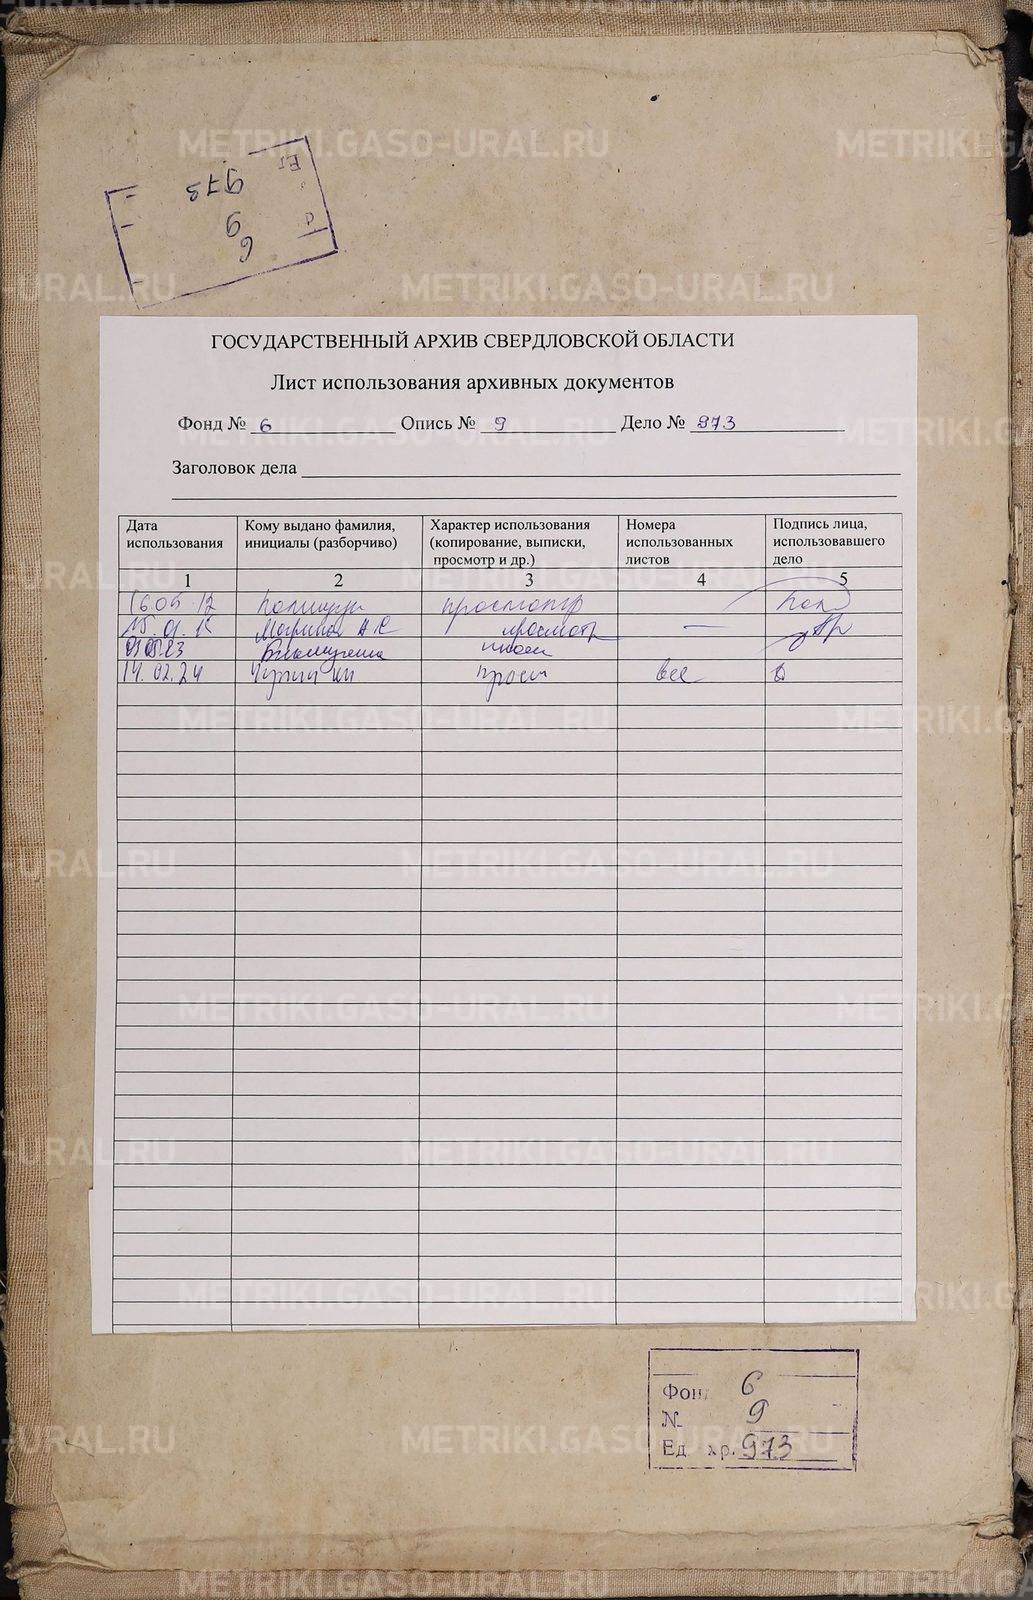 Ед
973
9
6
ГОСУДАРСТВЕННЫЙ АРХИВ СВЕРДЛОВСКОЙ ОБЛАСТИ
Лист использования архивных документов
Фонд № 6 Опись № 9 Дело № 973
Заголовок дела
Дата использования
Кому выдано фамилия, инициалы (разборчиво)
Характер использования (копирование, выписки, просмотр и др.)
Номера использованных листов
Подпись лица, использовавшего дело
1 2 3 4 5
16.05.12 просмотр
15.01.15 просмотр —
14.02.24 просм все
Фон 6
N 9
Ед хр. 973
METRIKI.GASO-URAL.RU